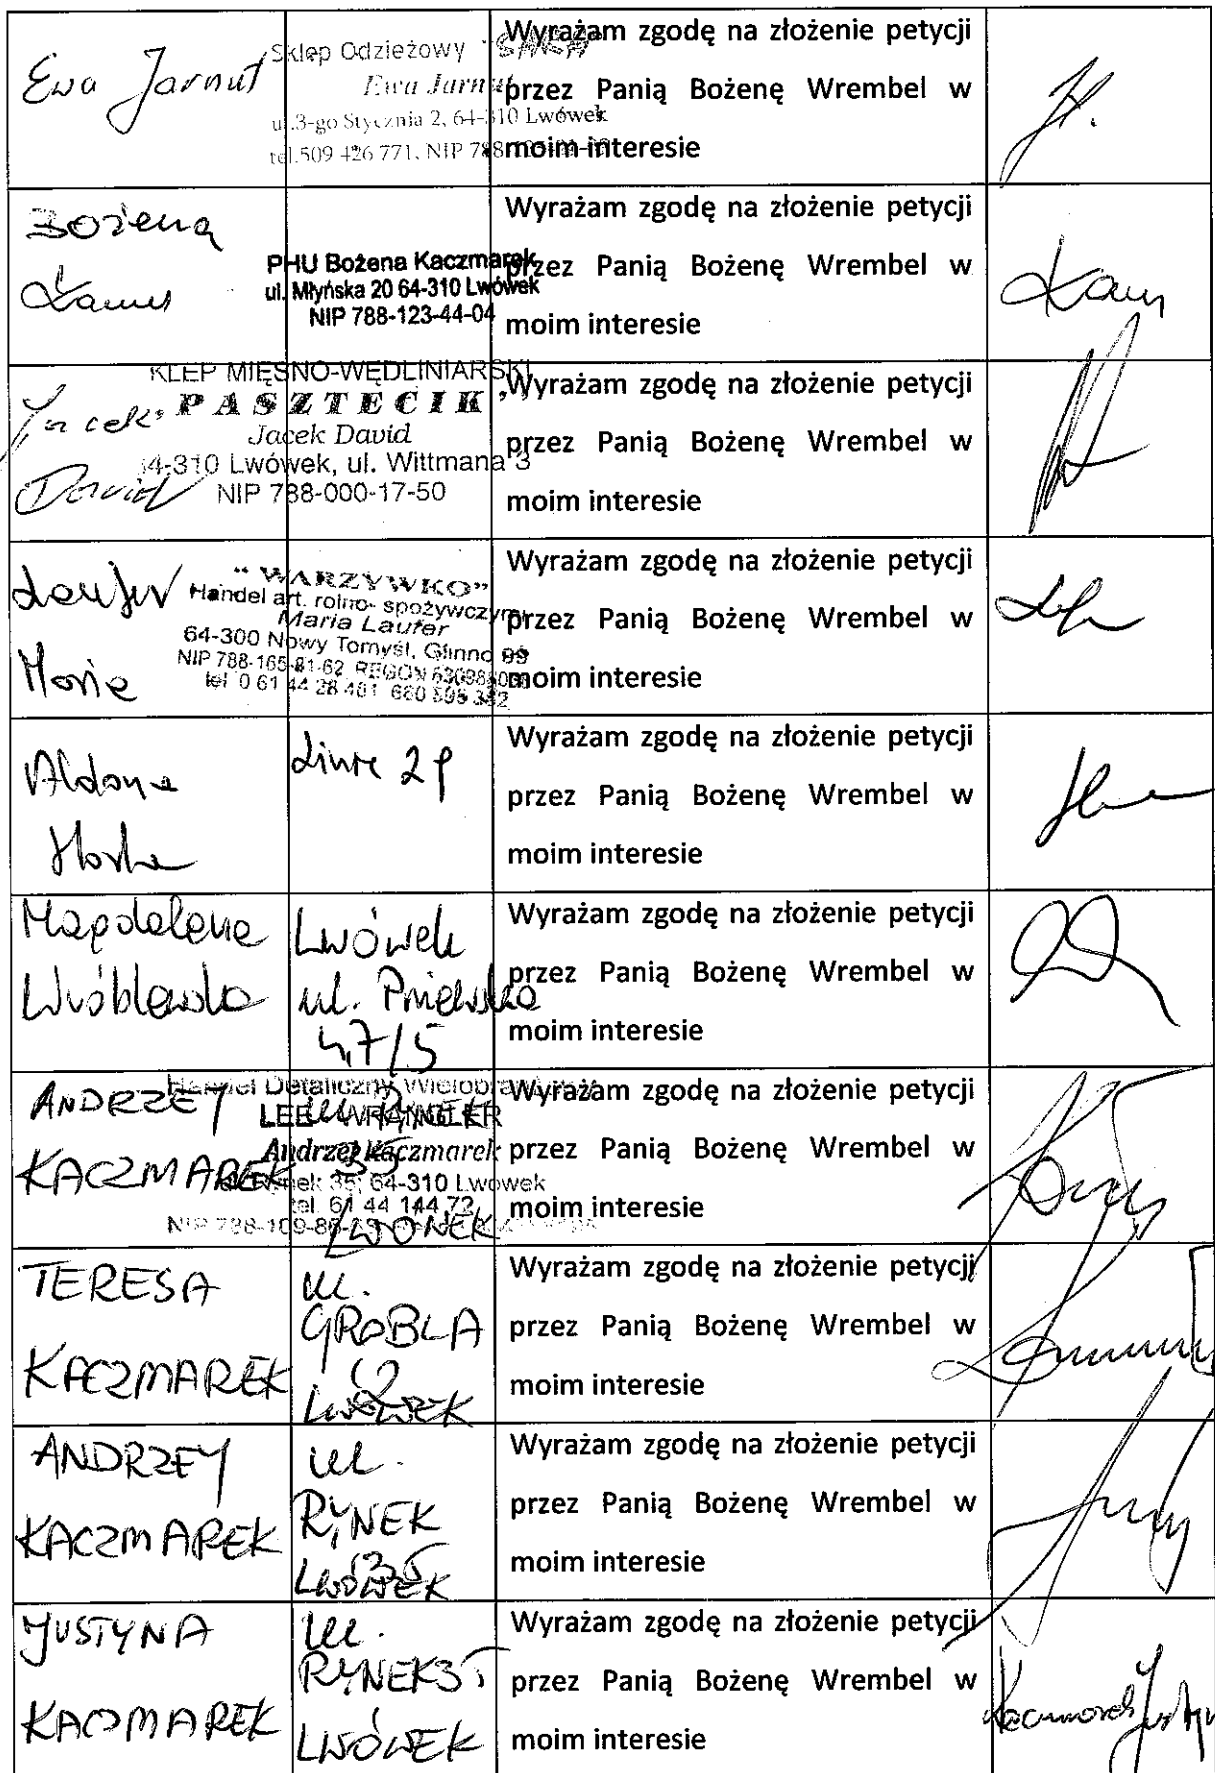 Ewa Jarnut
Sklep Odzieżowy "SARA"
Ewa Jarnut
ul.3-go Stycznia 2, 64-310 Lwówek
tel.509 426 771, NIP 788
Wyrażam zgodę na złożenie petycji
przez Panią Bożenę Wrembel w
moim interesie
Bożena
PHU Bożena Kaczmarek
ul. Młyńska 20 64-310 Lwówek
NIP 788-123-44-04
Wyrażam zgodę na złożenie petycji
przez Panią Bożenę Wrembel w
moim interesie
Jacek
David
KLEP MIĘSNO-WĘDLINIARSKI
PASZTECIK"
Jacek David
4-310 Lwówek, ul. Wittmana 3
NIP 788-000-17-50
Wyrażam zgodę na złożenie petycji
przez Panią Bożenę Wrembel w
moim interesie
Laufer
Maria
"WARZYWKO"
Handel art. rolno- spożywczymi
Maria Laufer
64-300 Nowy Tomyśl, Glinno 99
NIP 788-165-81-62 REGON
tel. 0 61 44 28 461
Wyrażam zgodę na złożenie petycji
przez Panią Bożenę Wrembel w
moim interesie
Aldona
Wyrażam zgodę na złożenie petycji
przez Panią Bożenę Wrembel w
moim interesie
Magdalena
Wróblewska
Lwówek
ul. Pniewska
47/5
Wyrażam zgodę na złożenie petycji
przez Panią Bożenę Wrembel w
moim interesie
ANDRZEJ
KACZMAREK
ul. RYNEK
35
LWÓWEK
Handel Detaliczny Wielobranżowy
LEE WRANGLER
Andrzej Kaczmarek
Rynek 35, 64-310 Lwówek
tel. 61 44 144 72
NIP 788-109-88
Wyrażam zgodę na złożenie petycji
przez Panią Bożenę Wrembel w
moim interesie
TERESA
KACZMAREK
ul.
GROBLA
LWÓWEK
Wyrażam zgodę na złożenie petycji
przez Panią Bożenę Wrembel w
moim interesie
ANDRZEJ
KACZMAREK
ul.
RYNEK
35
LWÓWEK
Wyrażam zgodę na złożenie petycji
przez Panią Bożenę Wrembel w
moim interesie
JUSTYNA
KACZMAREK
ul.
RYNEK 35
LWÓWEK
Wyrażam zgodę na złożenie petycji
przez Panią Bożenę Wrembel w
moim interesie
Kaczmarek Justyna